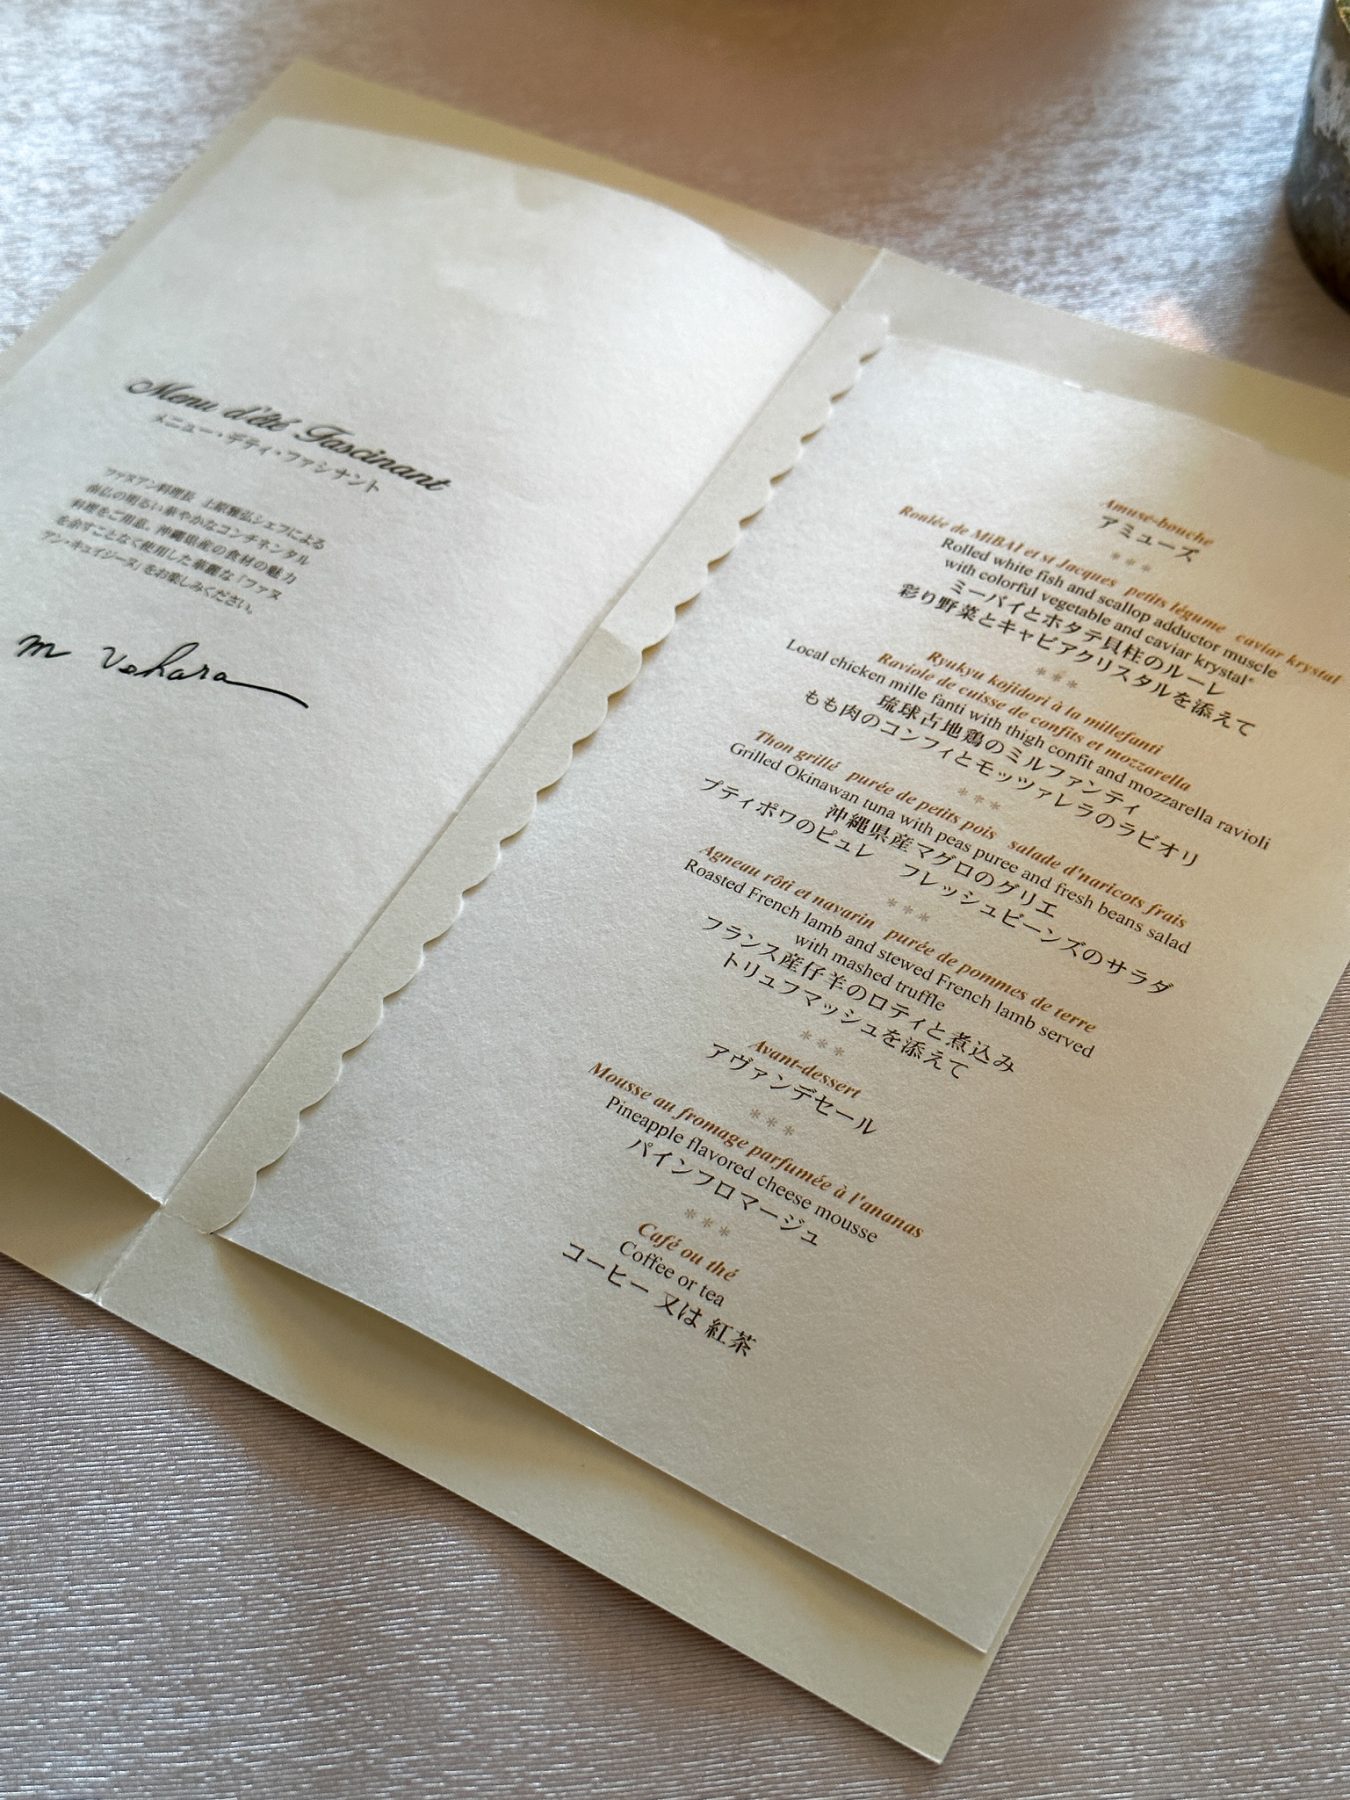 Menu d'été Fascinant
メニュー・デティ・ファシナント
ファヌアン料理長 上原雅弘シェフによる
南仏の明るい華やかなコンチネンタル
料理をご用意。沖縄県産の食材の魅力
を余すことなく使用した華麗な「ファヌ
アン・キュイジーヌ」をお楽しみください。
m Uehara
Amuse-bouche
アミューズ
***
Roulée de MiBAÏ et st Jacques petits légume caviar krystal
Rolled white fish and scallop adductor muscle
with colorful vegetable and caviar krystal®
ミーバイとホタテ貝柱のルーレ
彩り野菜とキャビアクリスタルを添えて
***
Ryukyu kojidori à la millefanti
Raviole de cuisse de confits et mozzarella
Local chicken mille fanti with thigh confit and mozzarella ravioli
琉球古地鶏のミルファンティ
もも肉のコンフィとモッツァレラのラビオリ
***
Thon grillé purée de petits pois salade d'naricots frais
Grilled Okinawan tuna with peas puree and fresh beans salad
沖縄県産マグロのグリエ
プティポワのピュレ フレッシュビーンズのサラダ
***
Agneau rôti et navarin purée de pommes de terre
Roasted French lamb and stewed French lamb served
with mashed truffle
フランス産仔羊のロティと煮込み
トリュフマッシュを添えて
***
Avant-dessert
アヴァンデセール
***
Mousse au fromage parfumée à l'ananas
Pineapple flavored cheese mousse
パインフロマージュ
***
Café ou thé
Coffee or tea
コーヒー 又は 紅茶